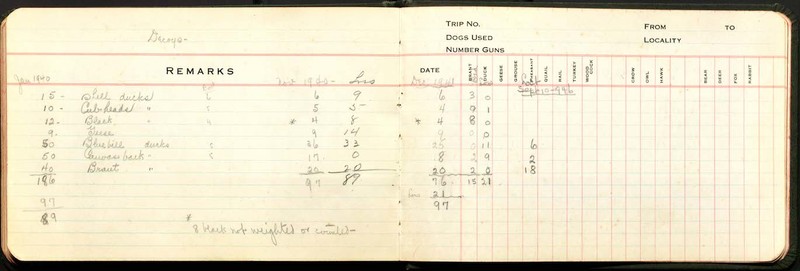 TRIP NO. FROM TO
DOGS USED LOCALITY
NUMBER GUNS
REMARKS
Jan 1940 Nov 1940 Loss
15 - Shell ducks 6 9
10 - Cub-heads " 5 5
12 - Black " * 4 8
9. Geese 14
50 Bluebill ducks 36 33
50 Canvas back - 17 0
40 Brant " 20 20
186 97 89
97
89
*
8 black not weighted or counted
DATE BRANT DUCK GEESE GROUSE PHEASANT QUAIL RAIL TURKEY WOOD COCK CROW OWL HAWK BEAR DEER FOX RABBIT
Dec 1941
6 3 0
4 9 1
* 4 8 0
9 0 0
25 0 11 6
8 2 9 2
20 2 0 18
76 15 21
21
97